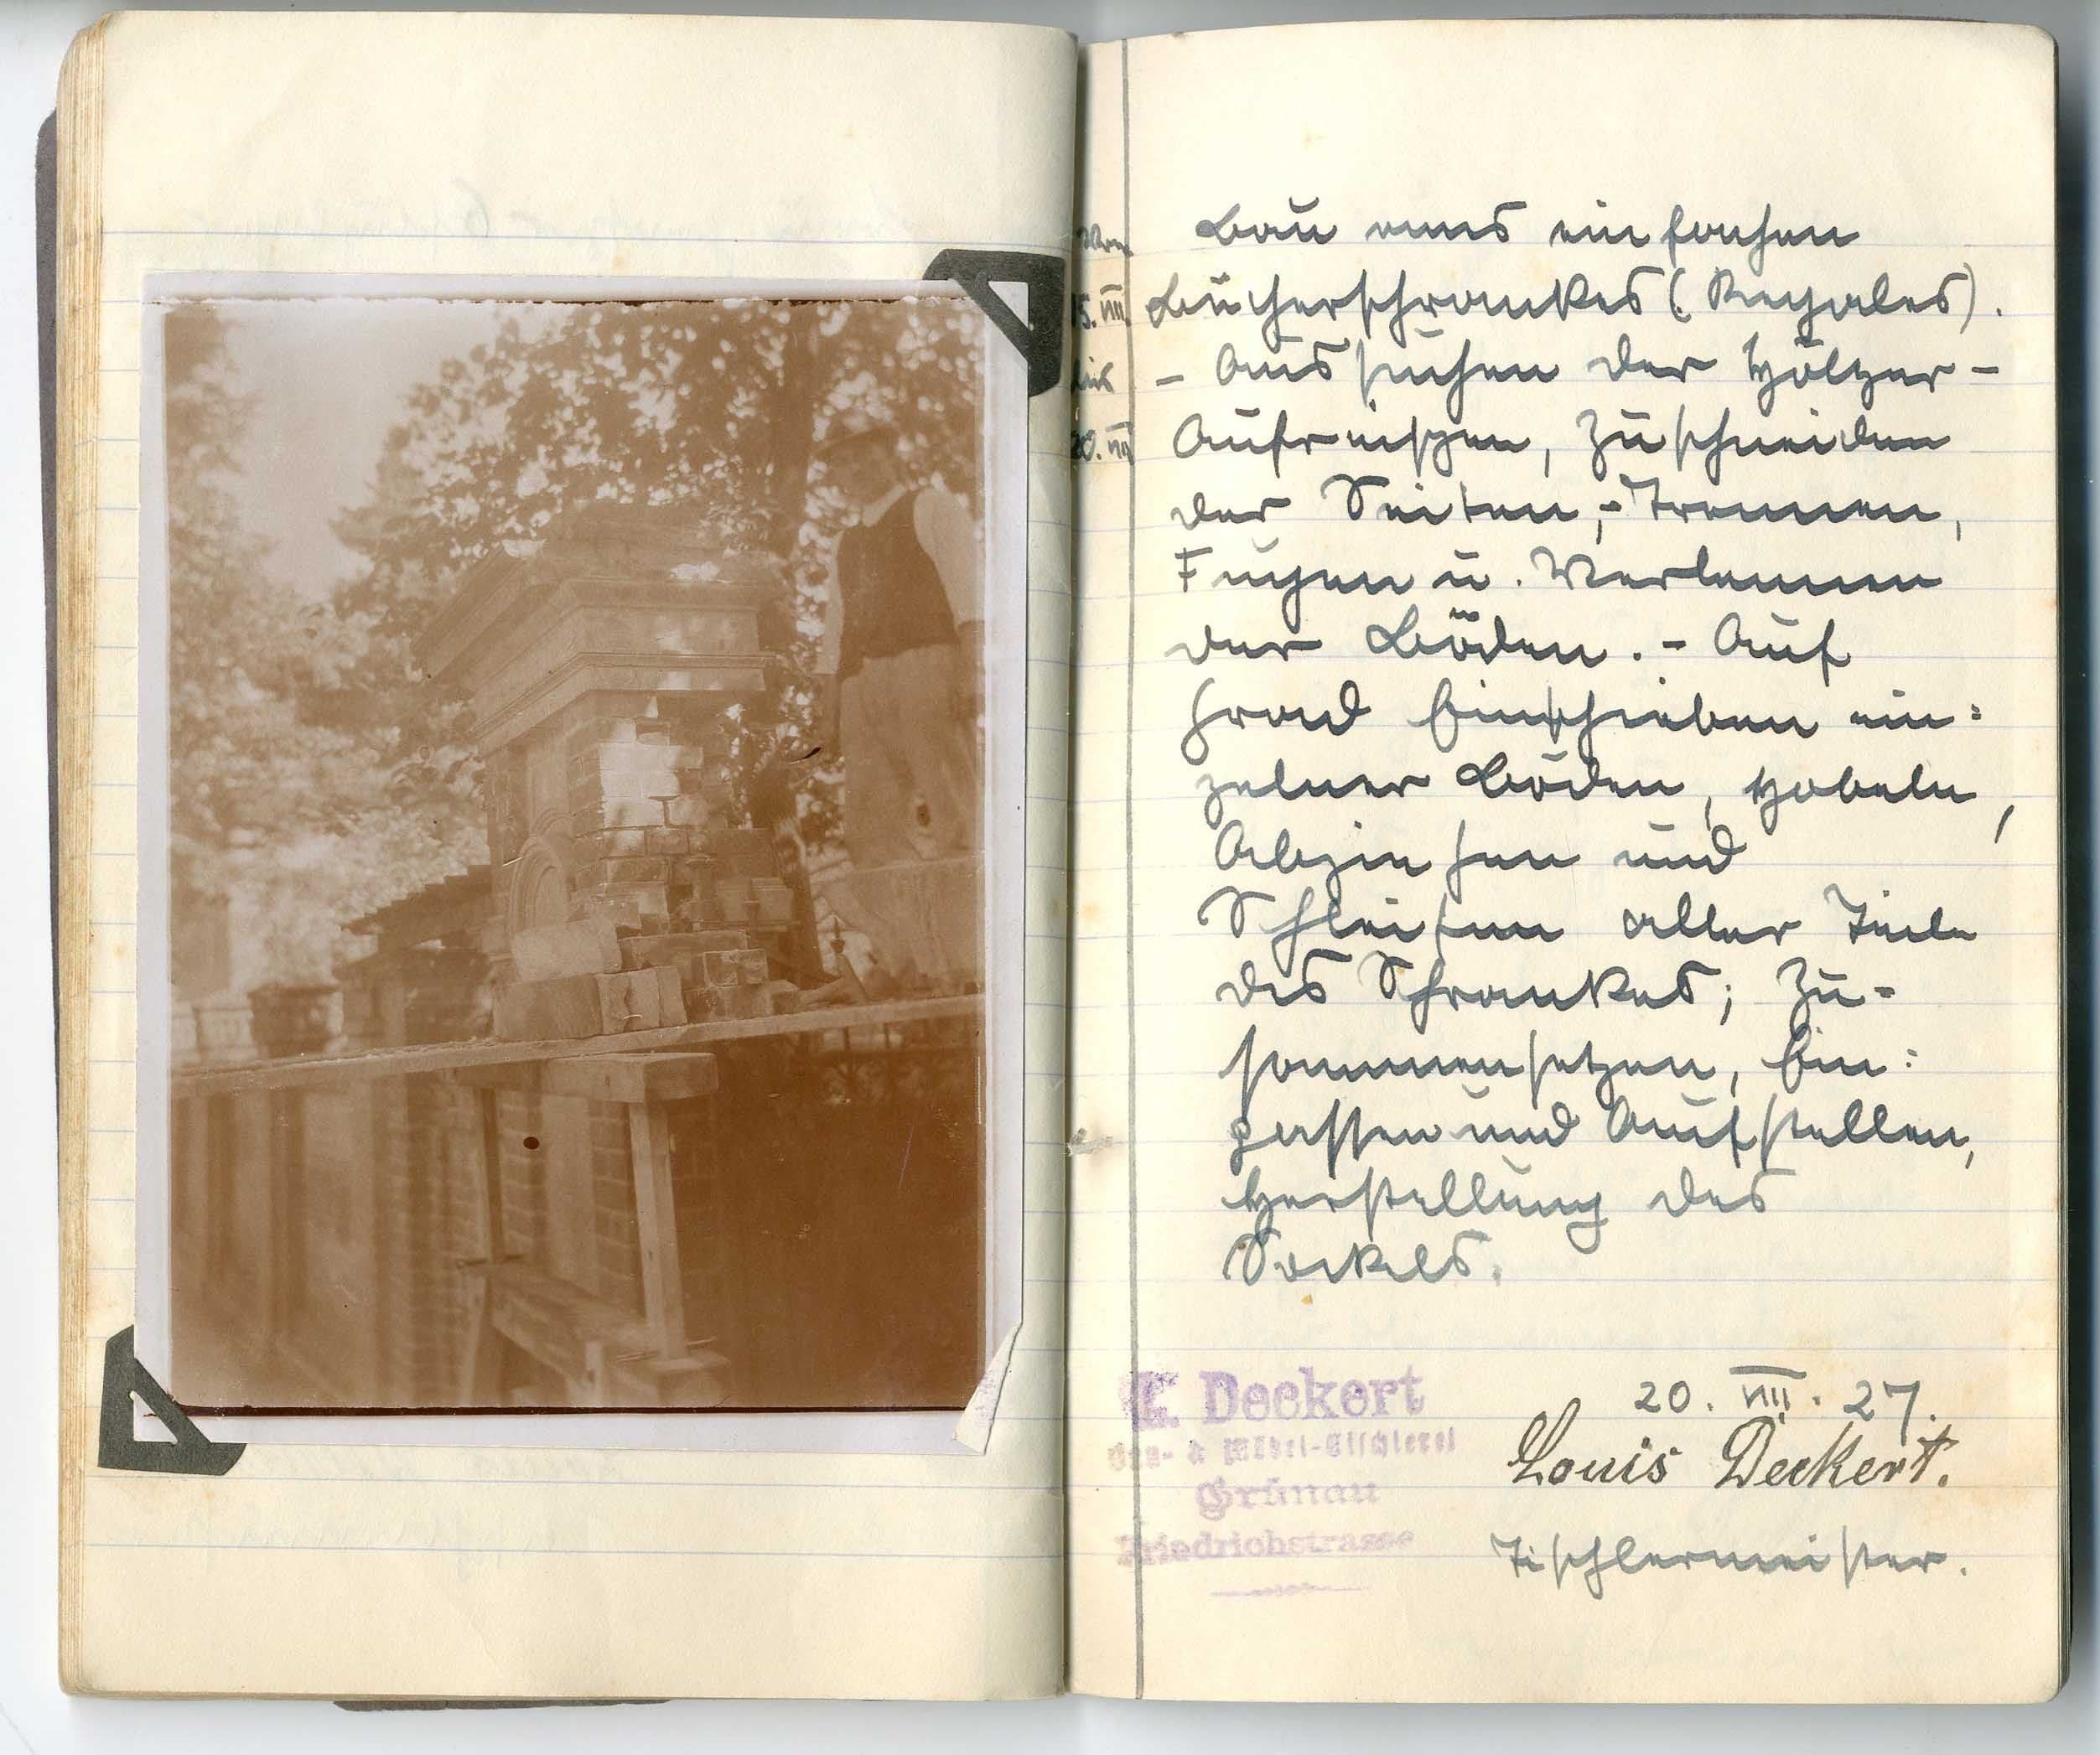 Vom
15. VIII.
bis
20. VIII
Bau eines einfachen
Bücherschrankes (Regales).
- Aussuchen der Hölzer -
Aufreißen, Zuschneiden
der Seiten, - Trennen,
Fugen u. Verleimen
der Böden. - Auf
Grad Einschieben ein:
zelner Böden, Hobeln,
Abziehen und
Schleifen aller Teile
des Schrankes; Zu-
sammensetzen, Ein:
passen und Aufstellen,
Herstellung des
Sockels.
20. VIII. 27.
Louis Deckert.
Tischlermeister.
L. Deckert
Bau- & Möbel-Tischlerei
Grünau
Friedrichstrasse